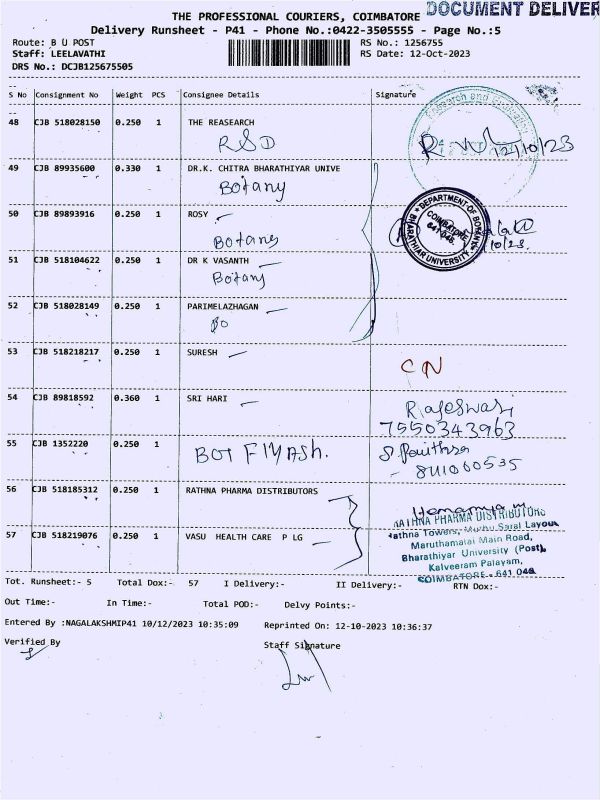 THE PROFESSIONAL COURIERS, COIMBATORE
DOCUMENT DELIVER
Delivery Runsheet - P41 - Phone No.:0422-3505555 - Page No.:5
Route: B U POST
RS No.: 1256755
Staff: LEELAVATHI
RS Date: 12-Oct-2023
DRS No.: DCJB125675505
S No Consignment No Weight PCS Consignee Details Signature
48 CJB 518028150 0.250 1 THE REASEARCH
RSD
12/10/23
49 CJB 89935600 0.330 1 DR.K. CHITRA BHARATHIYAR UNIVE
Botany
50 CJB 89893916 0.250 1 ROSY
Botany
DEPARTMENT OF BOTANY
BHARATHIAR UNIVERSITY
COIMBATORE
641 046.
10/23.
51 CJB 518104622 0.250 1 DR K VASANTH
Botany
52 CJB 518028149 0.250 1 PARIMELAZHAGAN
Bo
53 CJB 518218217 0.250 1 SURESH
CN
54 CJB 89818592 0.360 1 SRI HARI
Rajeswari
7550343963
55 CJB 1352220 0.250 1
S. Pavithra
56 CJB 518185312 0.250 1 RATHNA PHARMA DISTRIBUTORS
RATHNA PHARMA DISTRIBUTORS
57 CJB 518219076 0.250 1 VASU HEALTH CARE P LG
Maruthamalai Main Road,
Bharathiyar University (Post),
Kalveeram Palayam,
COIMBATORE - 641 046
Tot. Runsheet:- 5 Total Dox:- 57 I Delivery:- II Delivery:- RTN Dox:-
Out Time:- In Time:- Total POD:- Delvy Points:-
Entered By :NAGALAKSHMIP41 10/12/2023 10:35:09 Reprinted On: 12-10-2023 10:36:37
Verified By Staff Signature